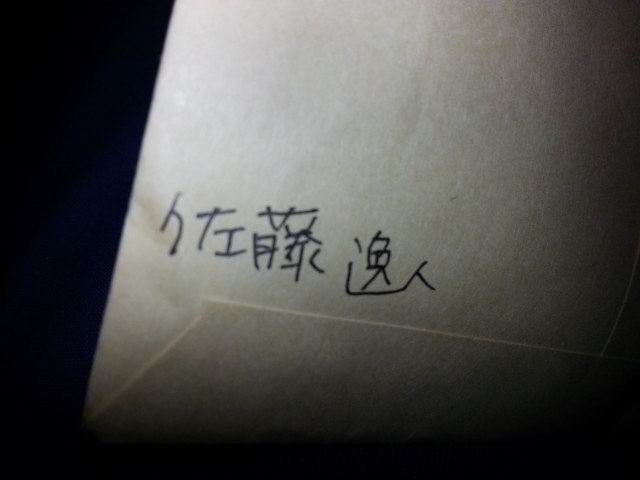 佐藤 逸人